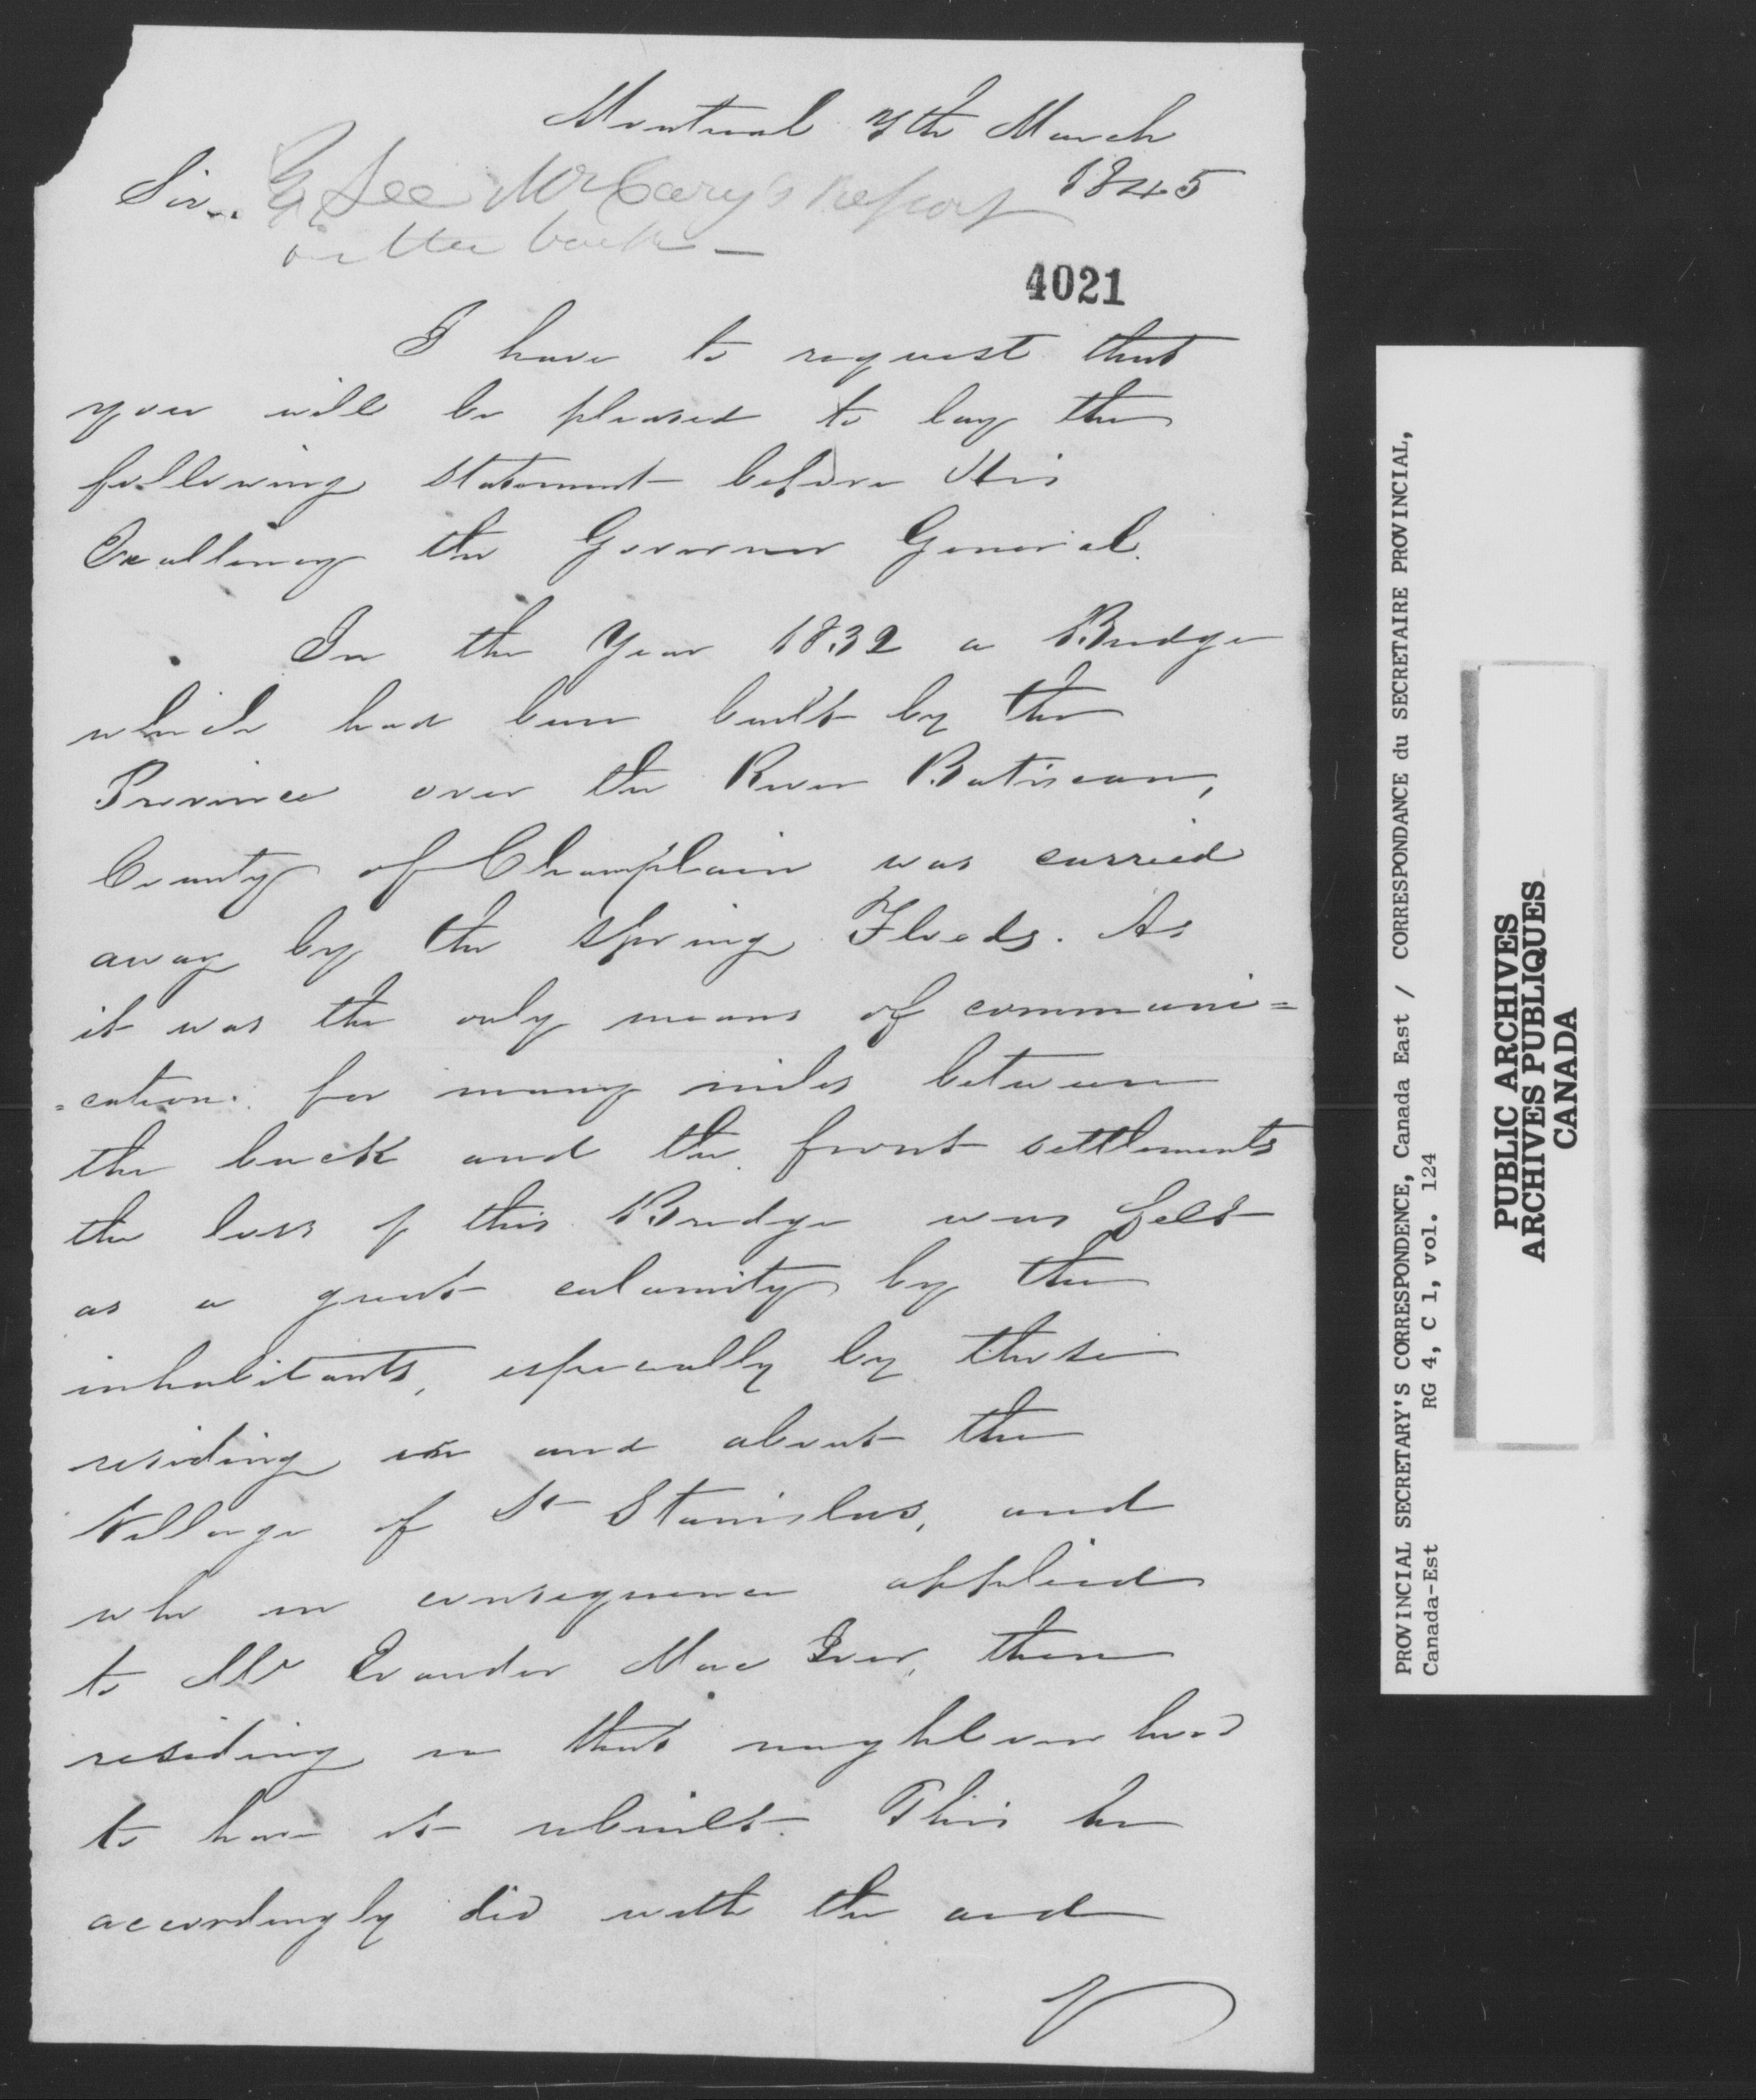 Montreal 7th March
1845
Sir,
See Mr Cary's Report
on the back —
4021
I have to request that
you will be pleased to lay the
following statement before His
Excellency the Governor General.
In the Year 1832 a Bridge
which had been built by the
Province over the River Batiscan,
County of Champlain was carried
away by the Spring Floods. As
it was the only means of communi=
=cation for many miles between
the back and the front settlements
the loss of this Bridge was felt
as a great calamity by the
inhabitants, especially by those
residing in and about the
Village of St Stanislas, and
who in consequence applied
to Mr Evander Mac Iver, then
residing in that neighbourhood
to have it rebuilt. This he
accordingly did with the aid
PROVINCIAL SECRETARY'S CORRESPONDENCE, Canada East / CORRESPONDANCE du SECRETAIRE PROVINCIAL,
Canada-Est RG 4, C 1, vol. 124
PUBLIC ARCHIVES
ARCHIVES PUBLIQUES
CANADA